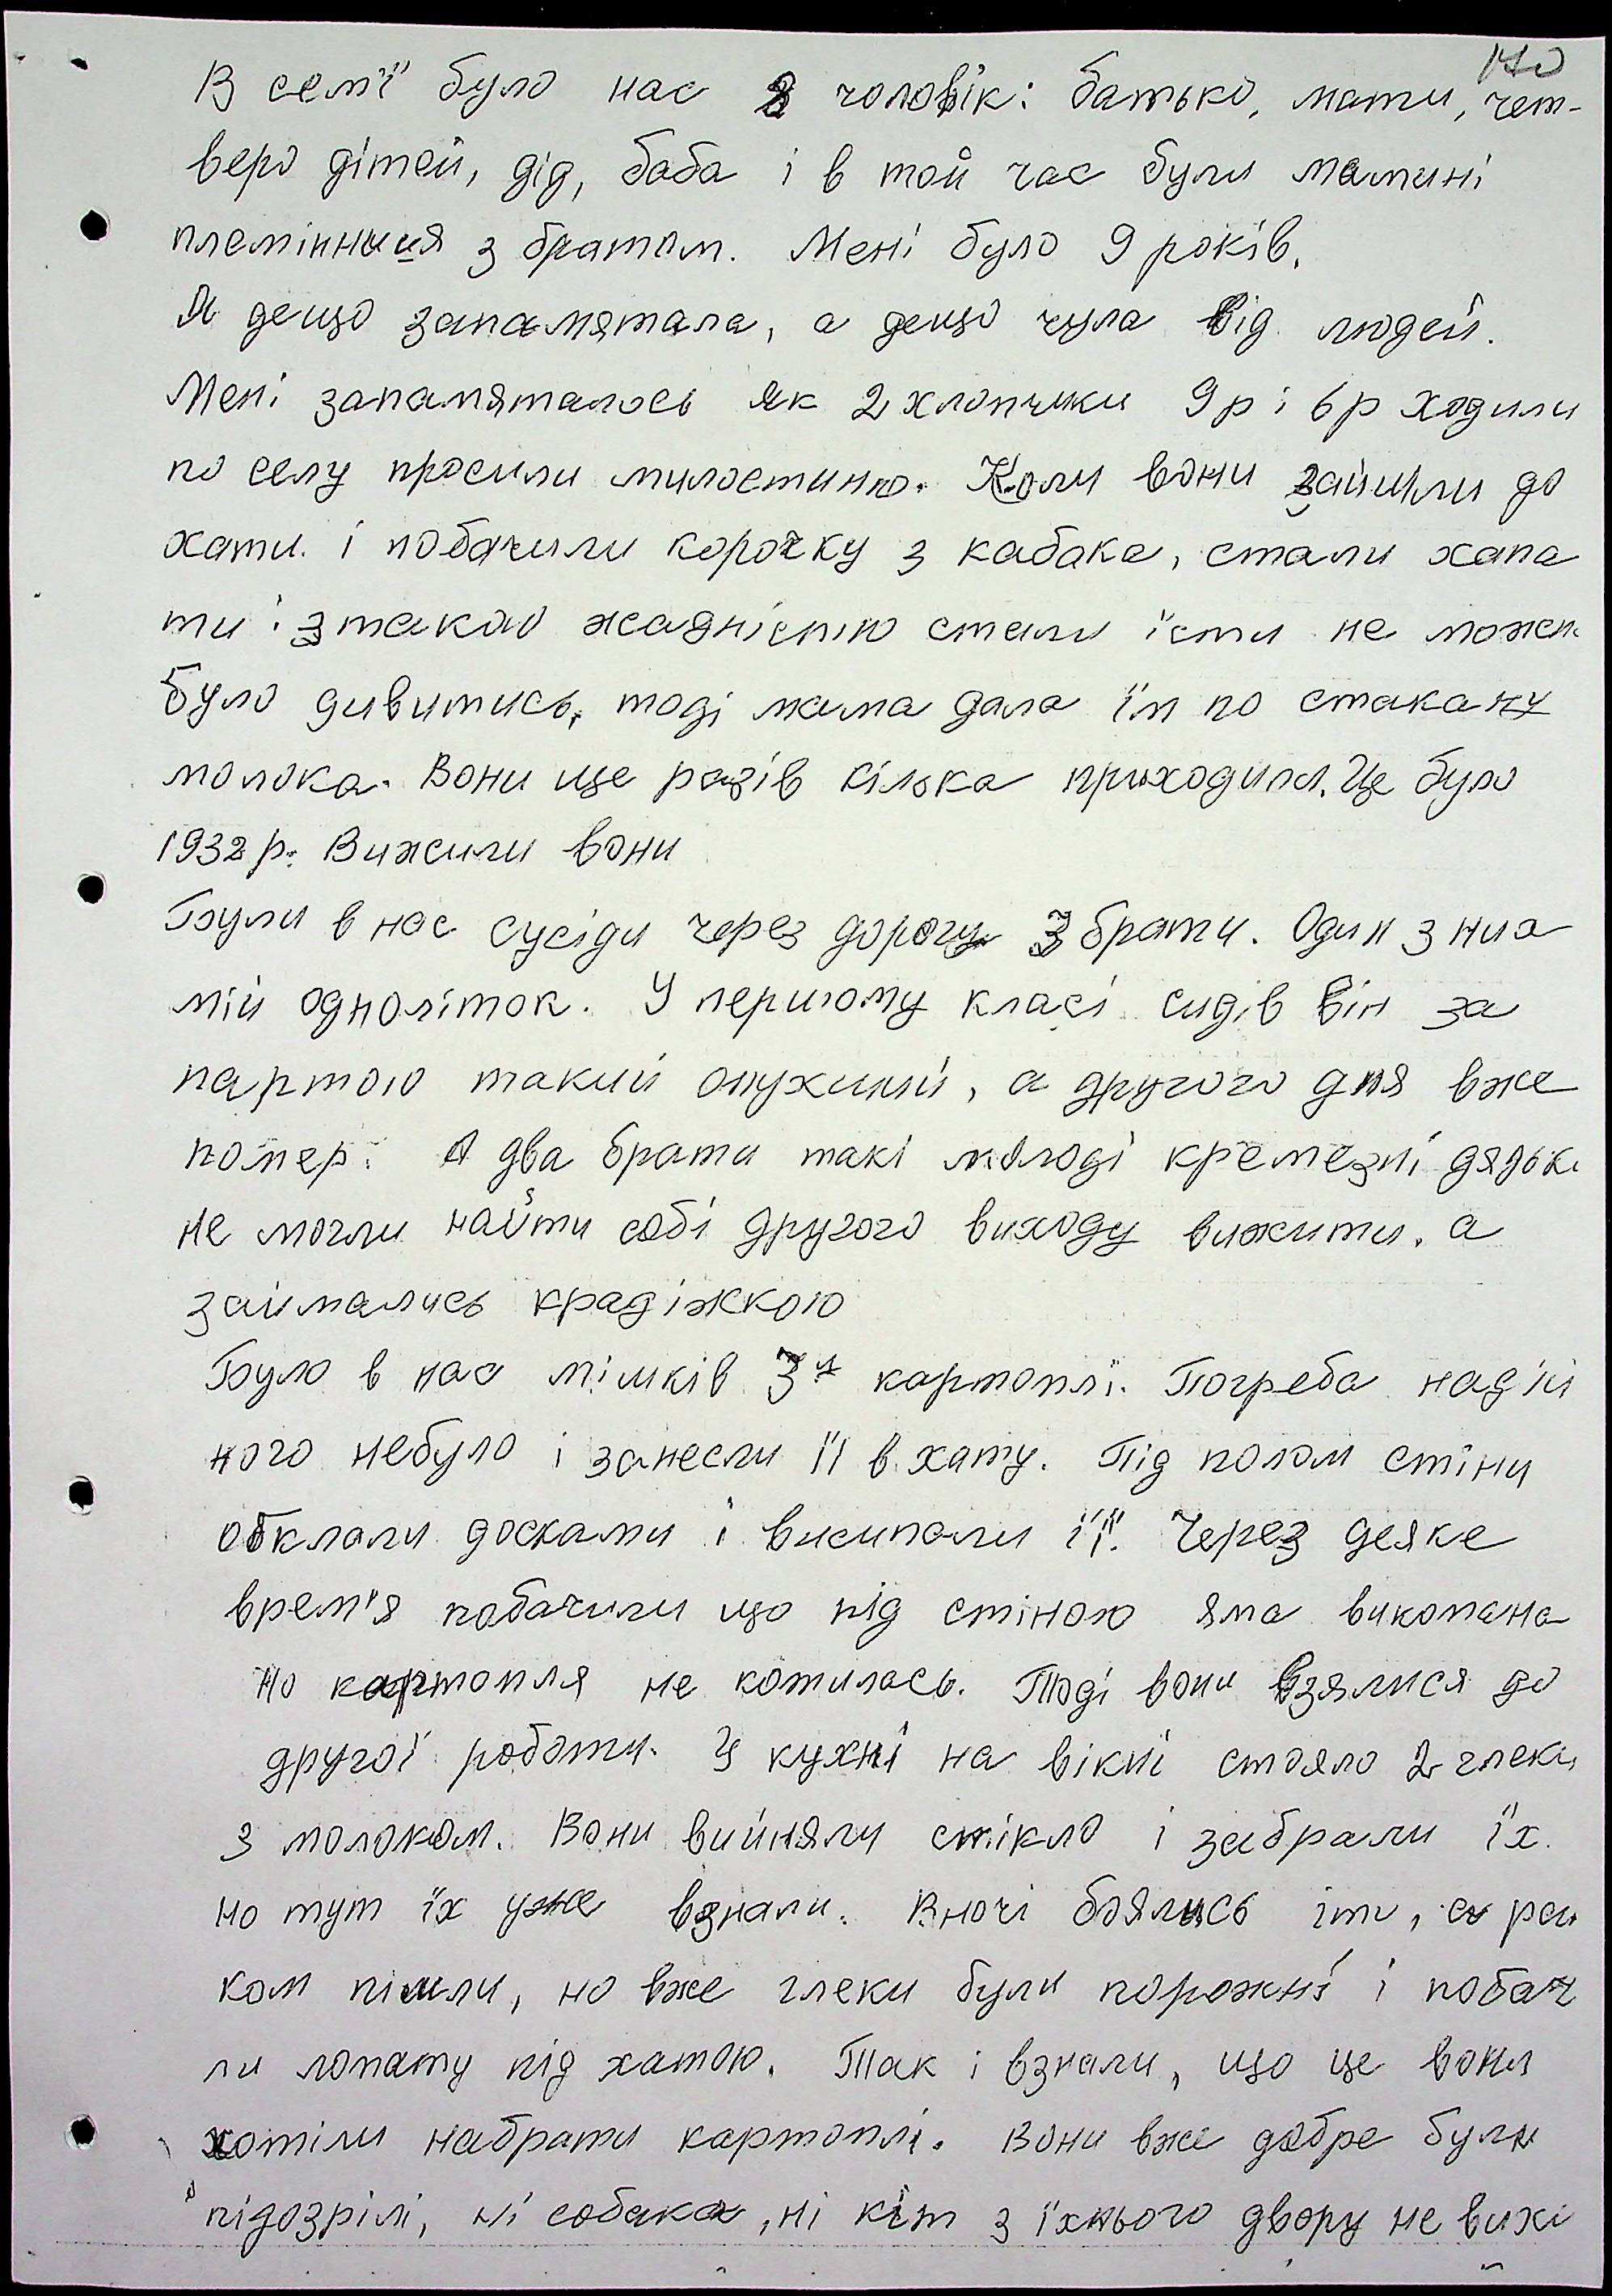 170
В семʼї було нас 8 чоловік: батько, мати, чет-
веро дітей, дід, баба і в той час були мамині
племінниця з братом. Мені було 9 років.
Я дещо запамятала, а дещо чула від людей.
Мені запамяталось як 2 хлопчики 9р і 6р ходили
по селу просили милостиню. Коли вони зайшли до
хати і побачили корочку з кабака, стали хапа
ти і з такою жадністю стали їсти не можн
було дивитись, тоді мама дала їм по стакану
молока. Вони ще разів кілька приходили. Це було
1932 р. Вижили вони
Були в нас сусіди через дорогу 3 брати. Один з них
мій одноліток. У першому класі сидів він за
партою такий опухший, а другого дня вже
помер. А два брати такі молоді кремезні дядьк
не могли найти собі другого виходу вижити, а
займались крадіжкою
Було в нас мішків 3 картоплі. Погреба надій
ного небуло і занесли її в хату. Під полом стіни
обклали досками і висипали її. Через деяке
времʼя побачили що під стіною яма викопана
но картопля не котилась. Тоді вони взялися до
другої роботи. У кухні на вікні стояло 2 глеки
з молоком. Вони вийняли стікло і забрали їх.
но тут їх уже взнали. Вночі боялись іти, а ран
ком пішли, но вже глеки були порожні і побач
ли лопату під хатою. Так і взнали, що це вони
хотіли набрати картоплі. Вони вже добре були
підозрілі, ні собака, ні кіт з їхнього двору не вихі